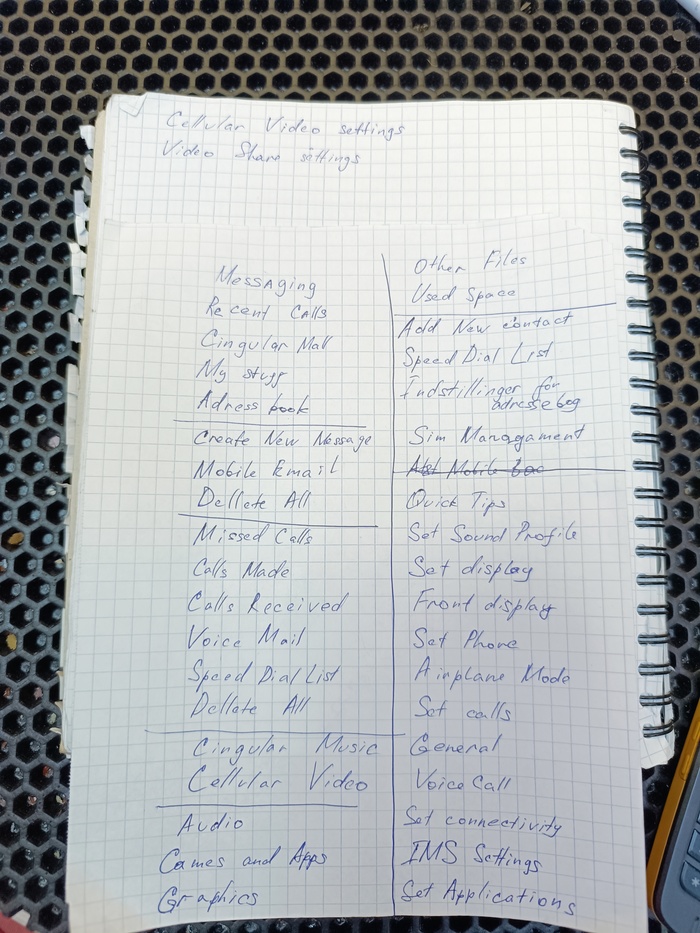 Cellular Video settings
Video Share settings
Messaging
Recent Calls
Cingular Mall
My stuff
Adress book
Create New Message
Mobile Email
Dellete All
Missed Calls
Calls Made
Calls Received
Voice Mail
Speed Dial List
Dellete All
Cingular Music
Cellular Video
Audio
Games and Apps
Graphics
Other Files
Used Space
Add New contact
Speed Dial List
Indstillinger for
adresse bog
Sim Managament
Quick Tips
Set Sound Profile
Set display
Front display
Set Phone
Airplane Mode
Set calls
General
Voice Call
Set connectivity
IMS Settings
Set Applications